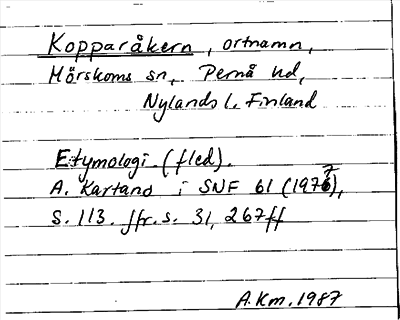 Kopparåkern, ortnamn,
Mörskoms sn, Pernå hd,
Nylands l. Finland
Etymologi. (fled).
A. Kartano i SNF 61 (1977),
S. 113. Jfr. s. 31, 267ff
A.Km. 1987